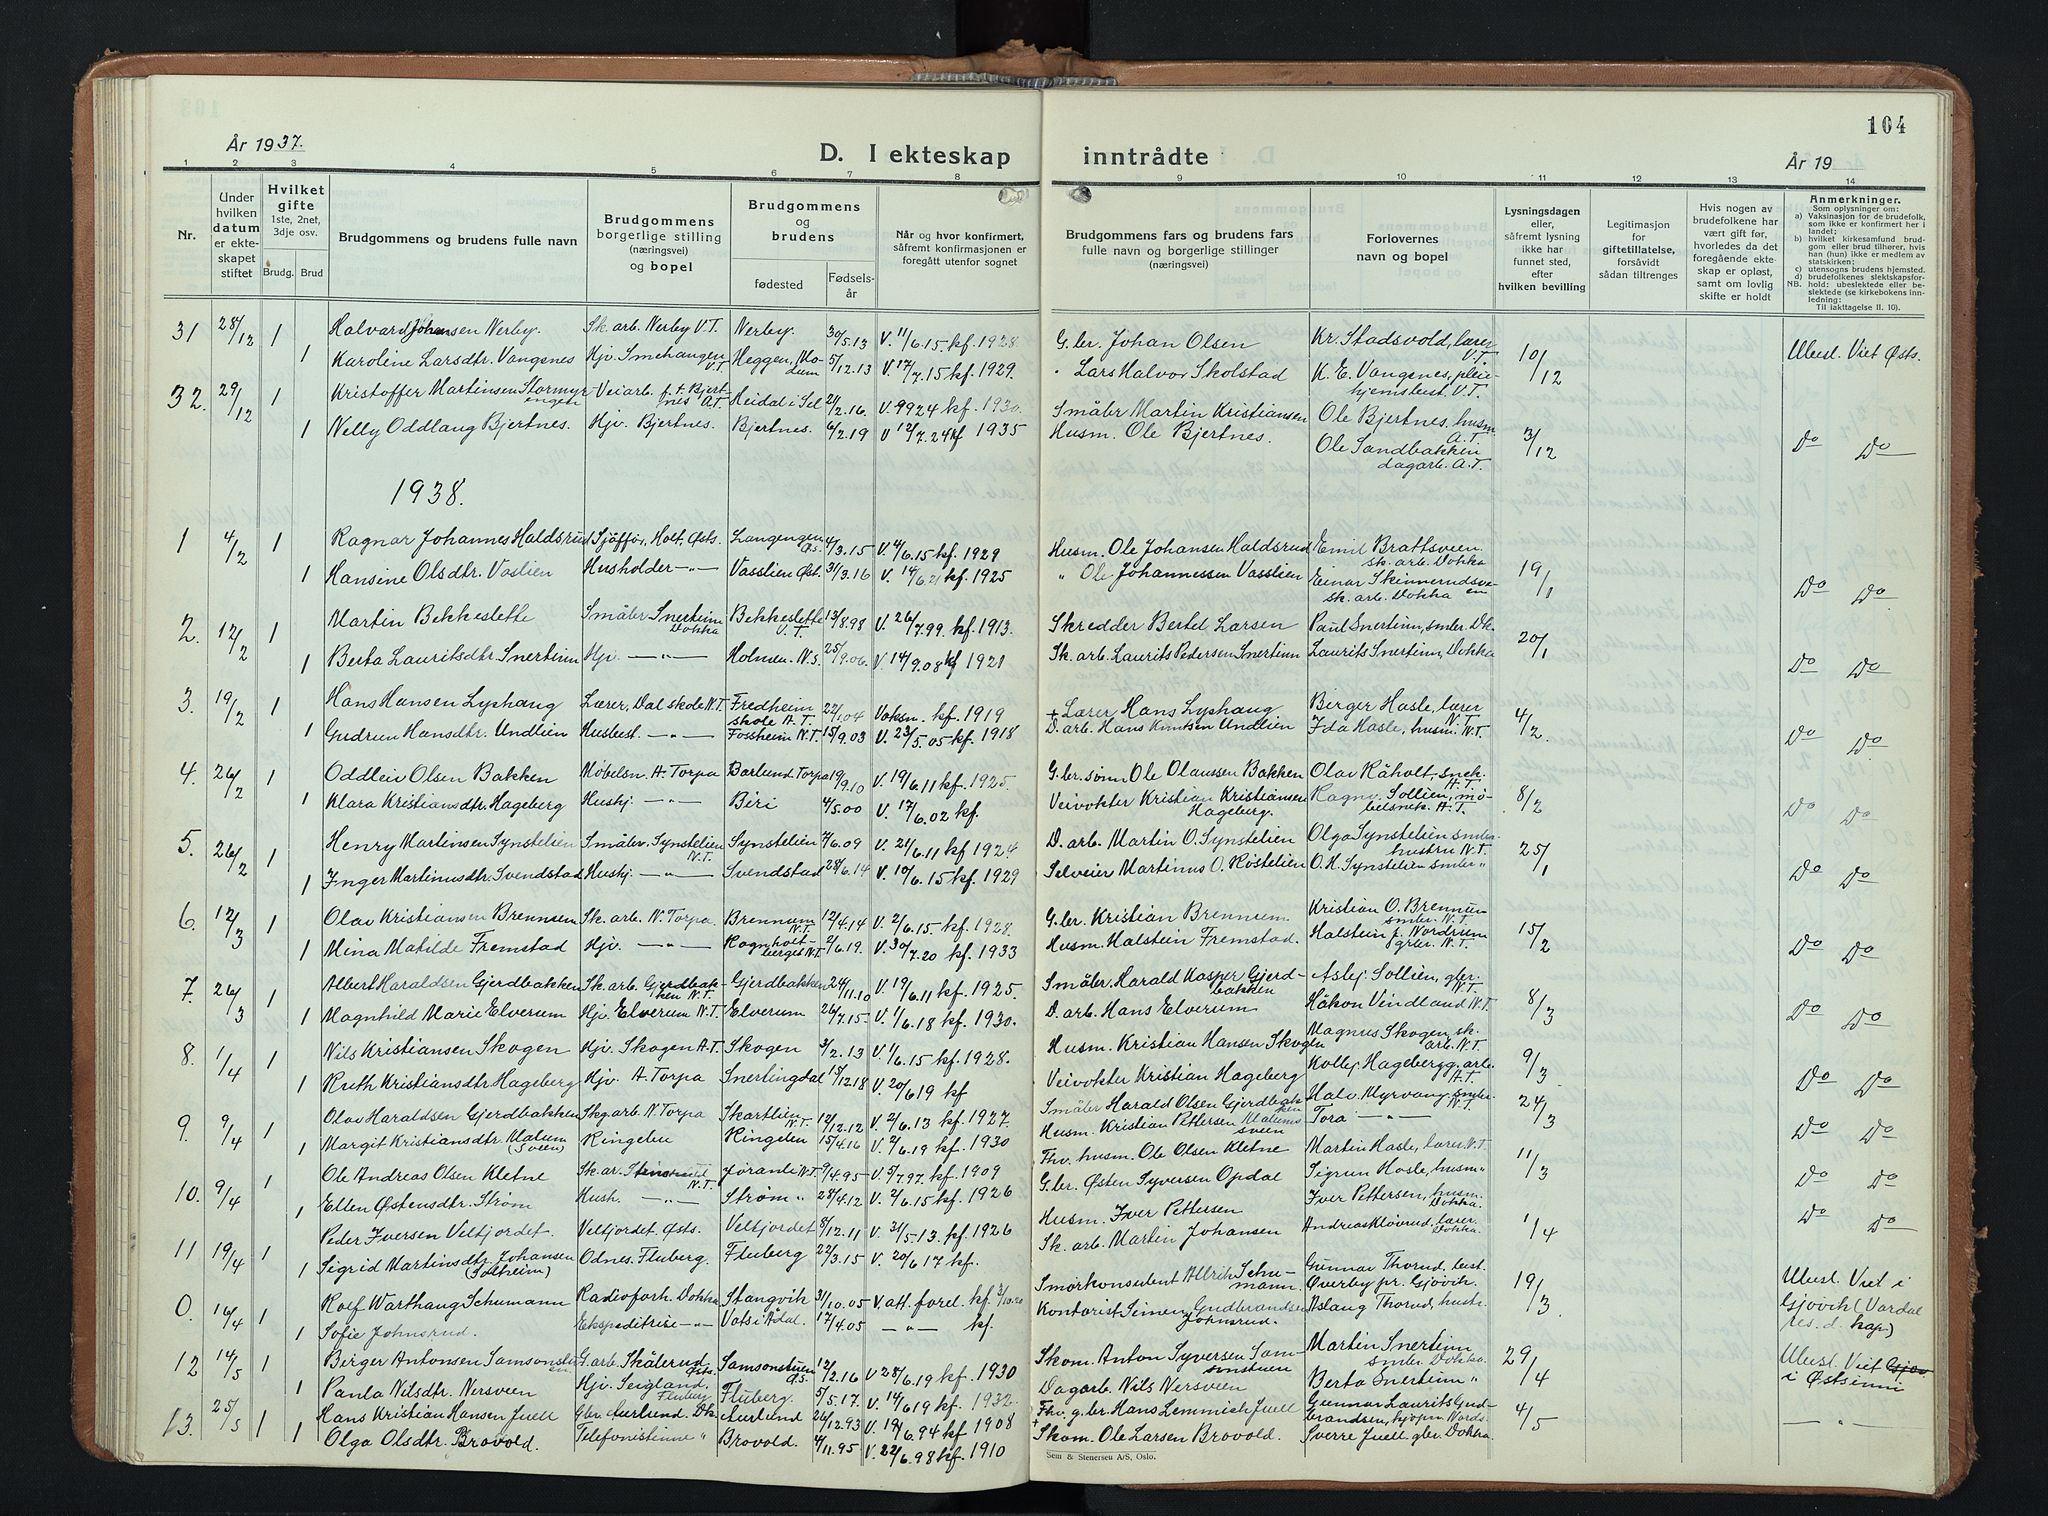 104
År 1937.
D. I ekteskap inntrådte
År 19
1 2 3 4 5 6 7 8 9 10 11 12 13 14
Nr.
Under hvilken datum er ekteskapet stiftet
Hvilket gifte 1ste, 2net, 3dje osv.
Brudg. Brud
Brudgommens og brudens fulle navn
Brudgommens borgerlige stilling (næringsvei) og bopel
Brudgommens og brudens
fødested
Fødselsår
Når og hvor konfirmert, såfremt konfirmasjonen er foregått utenfor sognet
Brudgommens fars og brudens fars fulle navn og borgerlige stillinger (næringsvei)
Forlovernes navn og bopel
Lysningsdagen eller, såfremt lysning ikke har funnet sted, efter hvilken bevilling
Legitimasjon for giftetillatelse, forsåvidt sådan tiltrenges
Hvis nogen av brudefolkene har vært gift før, hvorledes da det foregående ekteskap er opløst, samt om lovlig skifte er holdt
Anmerkninger.
Som oplysninger om:
a) Vaksinasjon for de brudefolk, som ikke er konfirmert her i landet;
b) hvilket kirkesamfund brudgom eller brud tilhører, hvis han (hun) ikke er medlem av statskirken;
c) utensogns brudens hjemsted.
d) brudefolkenes slektskapsforhold: ubeslektede eller beslektede (se kirkebokens innledning:
NB. Til iakttagelse II. 10).
31 28/12 1 Halvard Johansen Nerby. Sk. arb. Nerby V.T. Nerby. 30/5.13 V. 11/6.15 kf. 1928. G.br. Johan Olsen Kr. Stadsvold, lærer V.T. 10/12 Ubesl. Viet Østs.
1 Karoline Larsdtr. Vangsnes Hjv. Smehaugen V.T. Heggen, Modum 5/12.13 V. 17/7.15 kf. 1929. " Lars Halvor Skolstad K. E. Vangsnes, pleiehjemsbest. V.T.
32. 29/12 1 Kristoffer Martinsen Stormyrengen Veiarb. p.t. Bjertnes A.T. Heidal i Sel 21/2.16. V. 9924 kf. 1930. Småbr. Martin Kristiansen Ole Bjertnes, husm. A.T. 3/12 Do Do
1 Nelly Oddlaug Bjertnes. Hjv. Bjertnes. Bjertnes. 6/2.19 V 12/7.24 kf 1935 Husm. Ole Bjertnes. Ole Sandbakken dagarb. A.T.
1938.
1 4/2 1 Ragnar Johannes Haldsrud Sjåfför, Holt, Østs. Langengen Øs. 4/3.15 V. 4/6.15 kf. 1929 Husm. Ole Johansen Haldsrud Emil Brattsveen sk. arb. Dokka 19/1 Do Do
1 Hansine Olsdtr. Vaslien Husholder —"— Vasslien Øst. 31/3.16 V. 14/6.21 kf. 1925 " Ole Johannessen Vasslien Einar Skinnerudsveen sk. arb. Dokka
2. 12/2 1 Martin Bekkeslette Småbr. Snertinn Dokka Bekkeslette V.T. 13/8.98 V. 26/7.99. kf. 1913. Skredder Bertel Larsen Paul Snertinn, smbr. Dk. 20/1 Do Do
1 Berta Lauritsdtr. Snertinn Hjv. —"— Holmen. N.S. 25/9.06. V 14/9.08 kf 1921 Sk. arb. Laurits Pedersen Snertinn Laurits Snertinn, Dokka
3. 19/2 1 Hans Hansen Lyshaug Lærer, Dal skole N.T. Fredheim skole A.T. 22/1.04 Voksn. kf. 1919 + Lærer Hans Lyshaug Birger Hasle, lærer N.T. 4/2. Do Do
1 Gudrun Hansdtr. Undlien Husbest. —"— Fossheim N.T. 15/9.03 V. 23/5.05 kf. 1918 D. arb. Hans Knutsen Undlien Ida Hasle, husm. N.T.
4. 26/2 1 Oddleiv Olsen Bakken Møbelsn. A. Torpa Barlund Torpa 19/9.10 V. 19/6.11 kf. 1925. G.br. sønn Ole Olaussen Bakken Olav Råholt, snek. A.T. 8/2 Do Do
1 Klara Kristiansdtr. Hageberg Hushj. —"— Biri 4/5.00 V. 17/6.02 kf. Veivokter Kristian Kristiansen Hageberg. Ragnv. Sollien, møbelsnek. A.T.
5. 26/2 1 Henry Martinsen Synstelien Småbr. Synstelien N.T. Synstelien 7/6.09 V. 21/6.11 kf 1924 D. arb. Martin O. Synstelien Olga Synstelien smbr. hustru N.T. 25/1 Do Do
1 Inger Martinusdtr. Svendstad Hushj. —"— Svendstad 28/6.14 V. 10/6.15 kf. 1929 Selveier Martinus O. Røstelien O. H. Synstelien smbr "
6. 12/3 1 Olav Kristiansen Brennum Sk. arb. N. Torpa Brennum N.T. 12/4.14 V. 2/6.15. kf. 1928. G.br. Kristian Brennum. Kristian O. Brennum smbr. N.T. 15/2 Do Do
1 Mina Matilde Fremstad Hjv. —"— Ragnholtberget N.T. 2/6.19. V. 30/7.20 kf. 1933 Husm. Halstein Fremstad. Halstein f. Nordrum grbr. N.T.
7. 26/3 1 Albert Haraldsen Gjerdbakken Sk. arb. Gjerdbakken N.T. Gjerdbakken 24/11.10 V. 19/6.11 kf. 1925. Småbr. Harald Kasper Gjerdbakken Asbj. Sollien, gbr. N.T. 8/3 Do Do
1 Magnhild Marie Elverum Hjv. Elverum N.T. Elverum 26/7.15. V. 1/6.18 kf. 1930. D. arb. Hans Elverum Håkon Vindland N.T.
8. 1/4 1 Nils Kristiansen Skogen Hjv. Skogen A.T. Skogen 3/2.13 V. 1/6.15 kf. 1928. Husm. Kristian Hansen Skogen Magnus Skogen, sk. arb. N.T. 9/3 Do Do
1 Ruth Kristiansdtr. Hageberg Hjv. A. Torpa Snertingdal 15/12.18 V. 20/6.19 kf Veivokter Kristian Hageberg Kolbj. Hagebergg. arb. A.T.
9. 9/4 1 Olav Haraldsen Gjerdbakken Skg. arb. N. Torpa Skartlien N.T. 12/12.12 V. 2/6.13 kf. 1927. Småbr Harald Olsen Gjerdbakken Halv. Myrvang smbr. N.T. 24/3 Do Do
1 Margit Kristiansdtr. Malum (Sveen) Ringebu Ringebu 15/4.16 V. 2/6.19 kf. 1930 Husm. Kristian Pettersen Malumsveen Tora —"—
10. 9/4 1 Ole Andreas Olsen Kletne Sk. ar. N.T. Jøranli N.T. 9/4.95 V. 5/7.97. kf. 1909 Fhv. husm. Ole Olsen Kletne Martin Hasle, lærer N.T. 11/3 Do Do
1 Ellen Østensdtr. Strøm Hush. —"— Strøm " 28/4.12 V. 2/6.15 kf. 1926 G.br. Østen Syversen Opdal Sigrun Hasle, husm "
11 19/4 1 Peder Iversen Velfjordet. Velfjordet Østs. Velfjordet 8/12.11 V. 31/5.13. kf. 1926 Husm. Iver Pettersen Iver Pettersen, husm. Dokka. 1/4 Do Do
1 Sigrid Martinsdtr. Johansen (Solheim) Odnes. Fluberg. Fluberg 22/3.15 V. 20/6 17 kf. Sk. arb. Martin Johansen Andreas Kløvrud, lærer Dokka.
0. 16/4 1 Rolf Warthaug Schumann Radioforh. Dokka Stangvik 31/10.05 V. att. forel. kf. 3/10.20 Smørkonsulent Ullrik Schumann. Gunnar Thorud, best. Øverby pr. Gjøvik. 19/3 Ubesl. Viet i Gjøvik (Vardal res. d. kap.)
1 Sofie Johnsrud. Ekspeditrise —"— Vats i Ådal. 17/4.05 —"— kf. Kontorist Simen Gudbrandsen Johnsrud. Aslaug Thorud, hustr.
12 14/5 1 Birger Antonsen Samsonstuen G. arb. Skålerud Østs. Samsonstuen Øs. 12/2.16 V 28/6.19 kf. 1930 Skom. Anton Syversen Samsonstuen Martin Snertinn smbr. Dokka 29/4 Ubesl. Viet i Østsinni
1 Paula Nilsdtr. Nersveen Hjv. Seigland, Fluberg Fluberg. 5/5.17. V. 14/6 19 kf. 1932. Dagarb. Nils Nersveen Berta Snertinn "
13. 25/5 1 Hans Kristian Hansen Juell Gbr. Aurlund. Dk. Aurlund 26/12.93 V. 19/6.94 kf. 1908 Fhv. g.br. Hans Lemmich Juell Gunnar Laurits Gudbrandsen, kjøpm. Nords. 4/5 —"—
1 Olga Olsdtr. Brovold. Telefonistinne " Brovold. 4/11.95 V. 22/6.98 kf. 1910 + Skom. Ole Larsen Brovold. Sverre Juell gbr. Dokka
Sem & Stenersen A/S, Oslo.